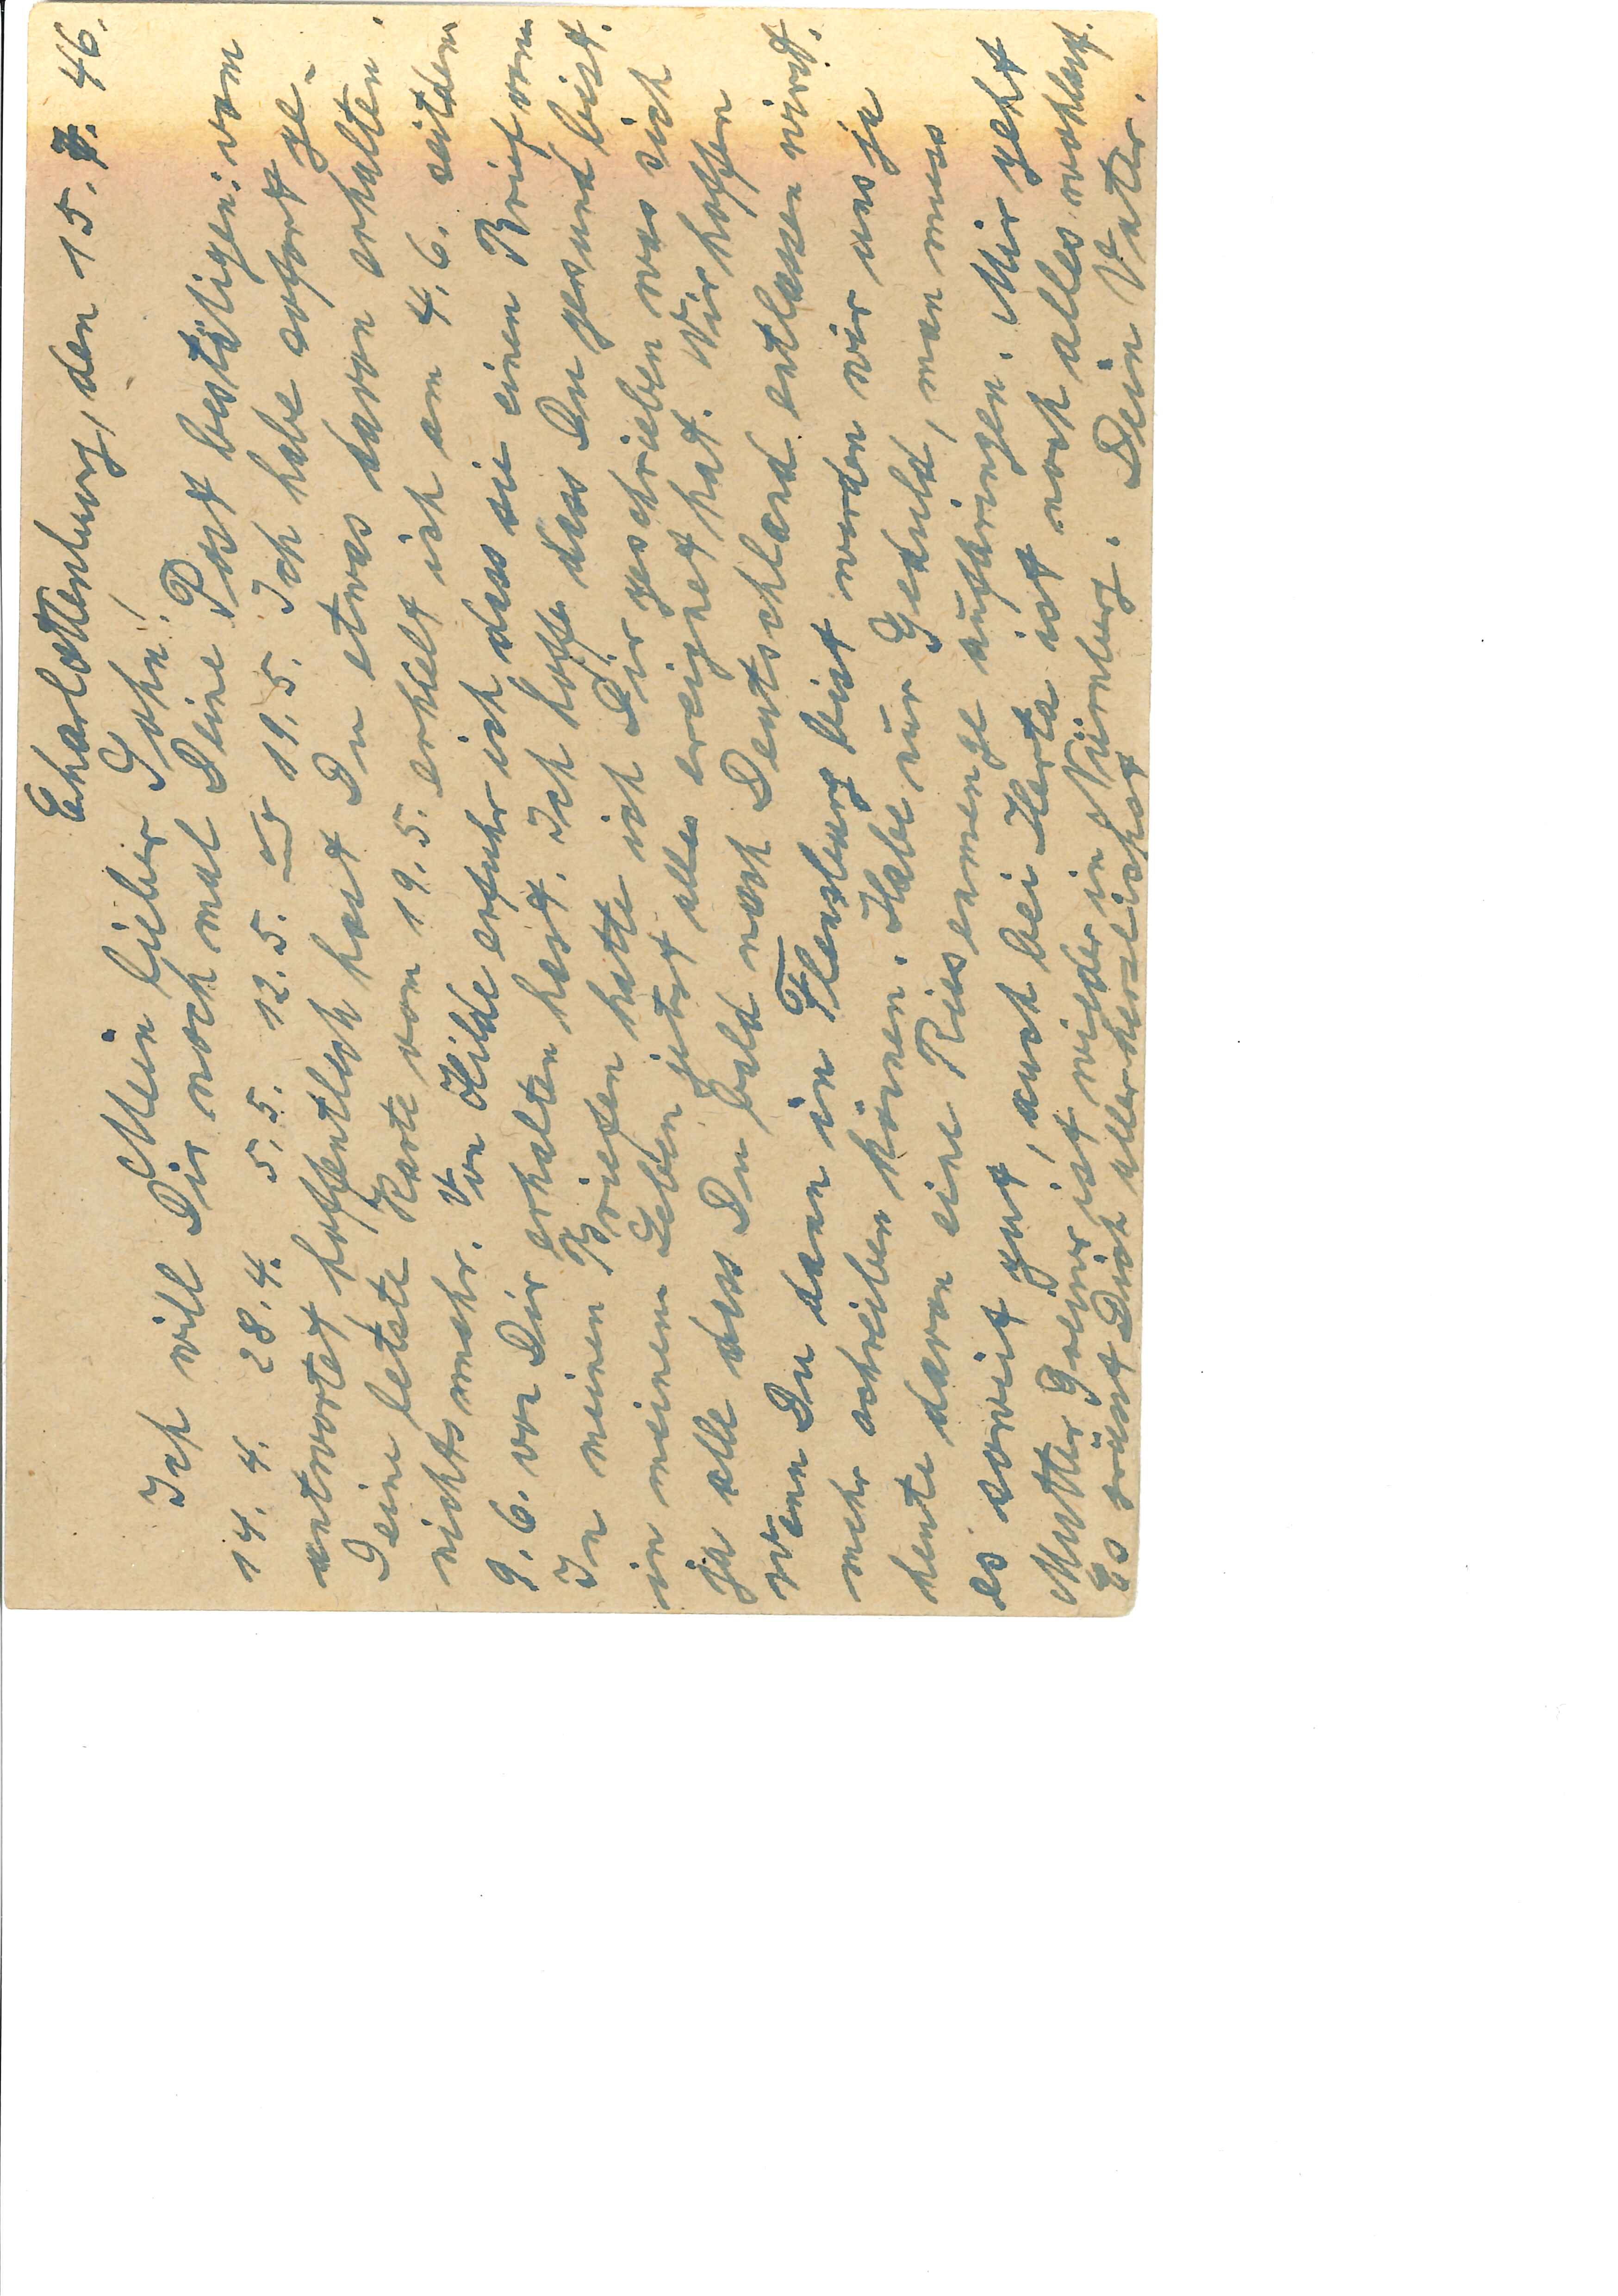 Charlottenburg, den 15. 7. 46.
Mein lieber Sohn!
Ich will Dir noch mal Deine Post bestätigen: vom
14. 4. 28. 4. 5. 5. 12. 5. 19. 5. Ich habe sofort ge-
antwortet hoffentlich hast Du etwas davon erhalten.
Deine letzte Karte vom 19. 5. erhielt ich am 4. 6. seitdem
nichts mehr. Von Hilde erfuhr ich dass sie einen Brief vom
9. 6. von Dir erhalten hast. Ich hoffe dass Du gesund bist.
In meinen Briefen hatte ich Dir geschrieben was sich
in meinem Leben jetzt alles ereignet hat. Wir hoffen
ja alle dass Du bald nach Deutschland entlassen wirst.
Wenn Du dann in Flensburg bist werden wir uns ja
mehr schreiben können. Habe nur Geduld, man muss
heute davon eine Riesenmenge aufbringen. Mir geht
es soweit gut, auch bei Herta ist noch alles wohlauf.
Mutter ist wieder in Nürnberg.
Es grüsst Dich allerherzlichst Dein Vater.